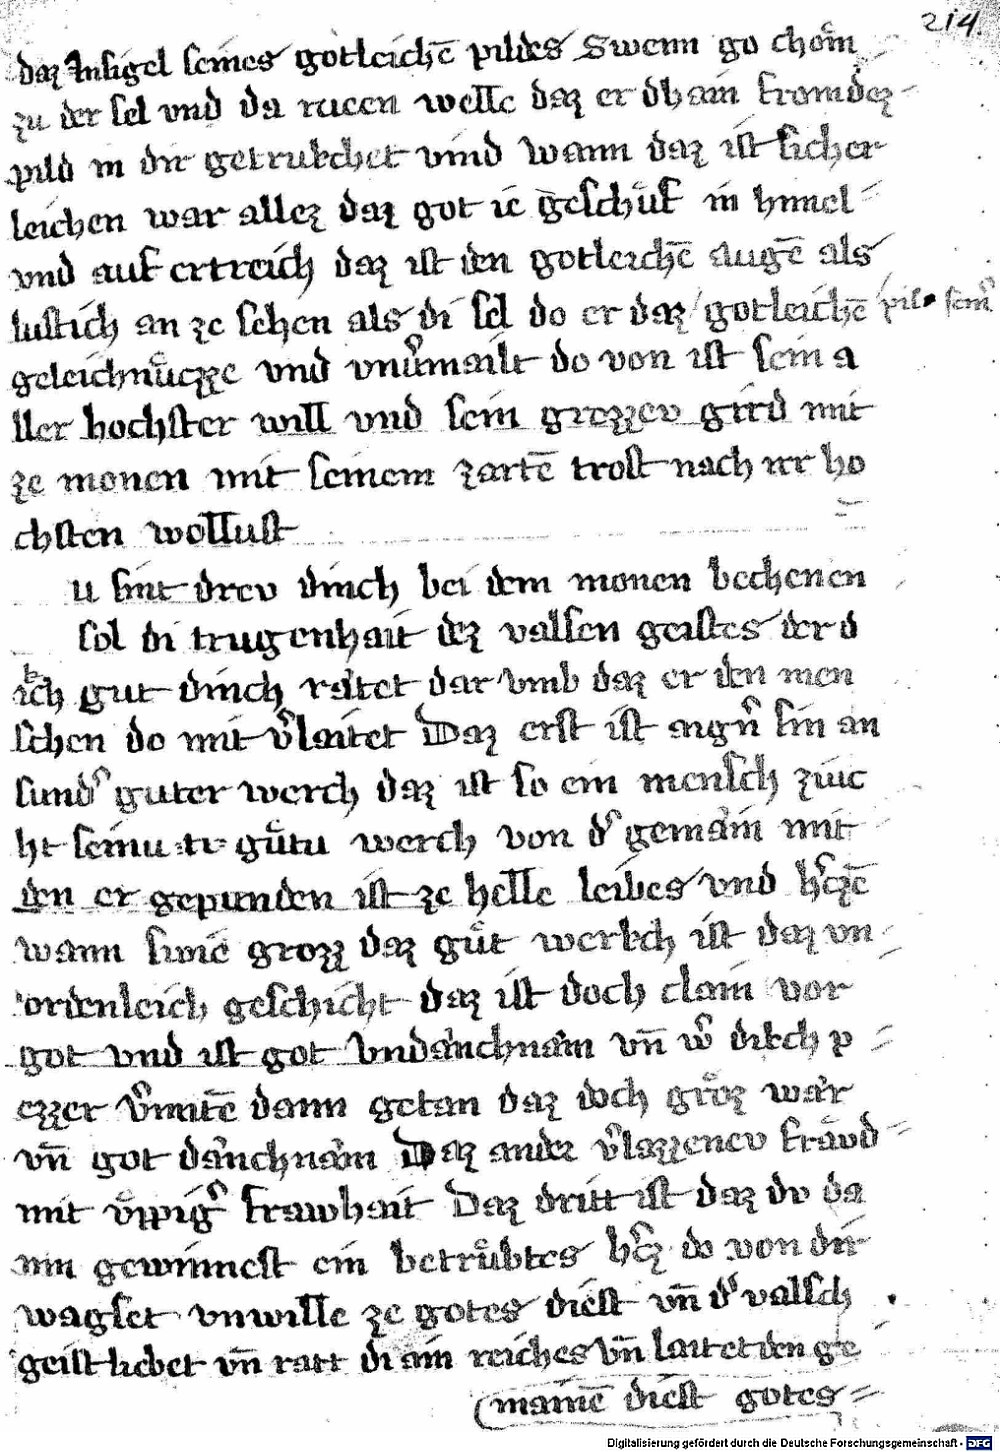 214.
daz Insigel seines gotleichē pildes Swenn go chöm
zu der sel vnd da rucen welle daz er dhain fromdez
pild in dir getrukchet vind wann daz ist sicher
leichen war allez daz got ie geschůf in himel
vnd auf ertreich daz ist den gotleichē augē als
lustich an ze sehen als di sel do er daz gotleichē pild seinr
geleichnůzze vnd vnuͤrmailt do von ist sein a
ller hochster will vnd sein grozzev gird mit
ze monen mit seinem zartē trost nach irr ho
chsten wollust
u sint drev dinch bei dem monen bechenen
sol di trugenhait dez valschen geistes der d
ich gut dinch rátet dar vmb daz er den men
schen do mit v̉laitet Daz erst ist aign̉ sin an
sund̉ guter werch daz ist so ein mensch zuic
ht seinu guͤtu werch von d̉ gemain mit
den er gepunden ist ze helle leibes vnd h̉czē
wann swie grozz daz guͤt werkch ist daz vn
ordenleich geschicht daz ist doch clain vor
got vnd ist got vndanchnám vn̄ w̉ dikch p
ezzer v̉mitē dann getan daz doch groͤz wár
vn̄ got dánchnám Daz ander v̉lazzenev fráud
mit vͤppig̉ frawhait Daz dritt ist daz dv da
inn gewinnest ein betruͤbtes h̉cz do von dir
wagset vnwille ze gotes diēst vn̄ d̉ valsch
geist liebet vn̄ ratt di ain reiches vn̄ lait et den ge
mainē diēst gotes
Digitalisierung gefördert durch die Deutsche Forschungsgemeinschaft - DFG